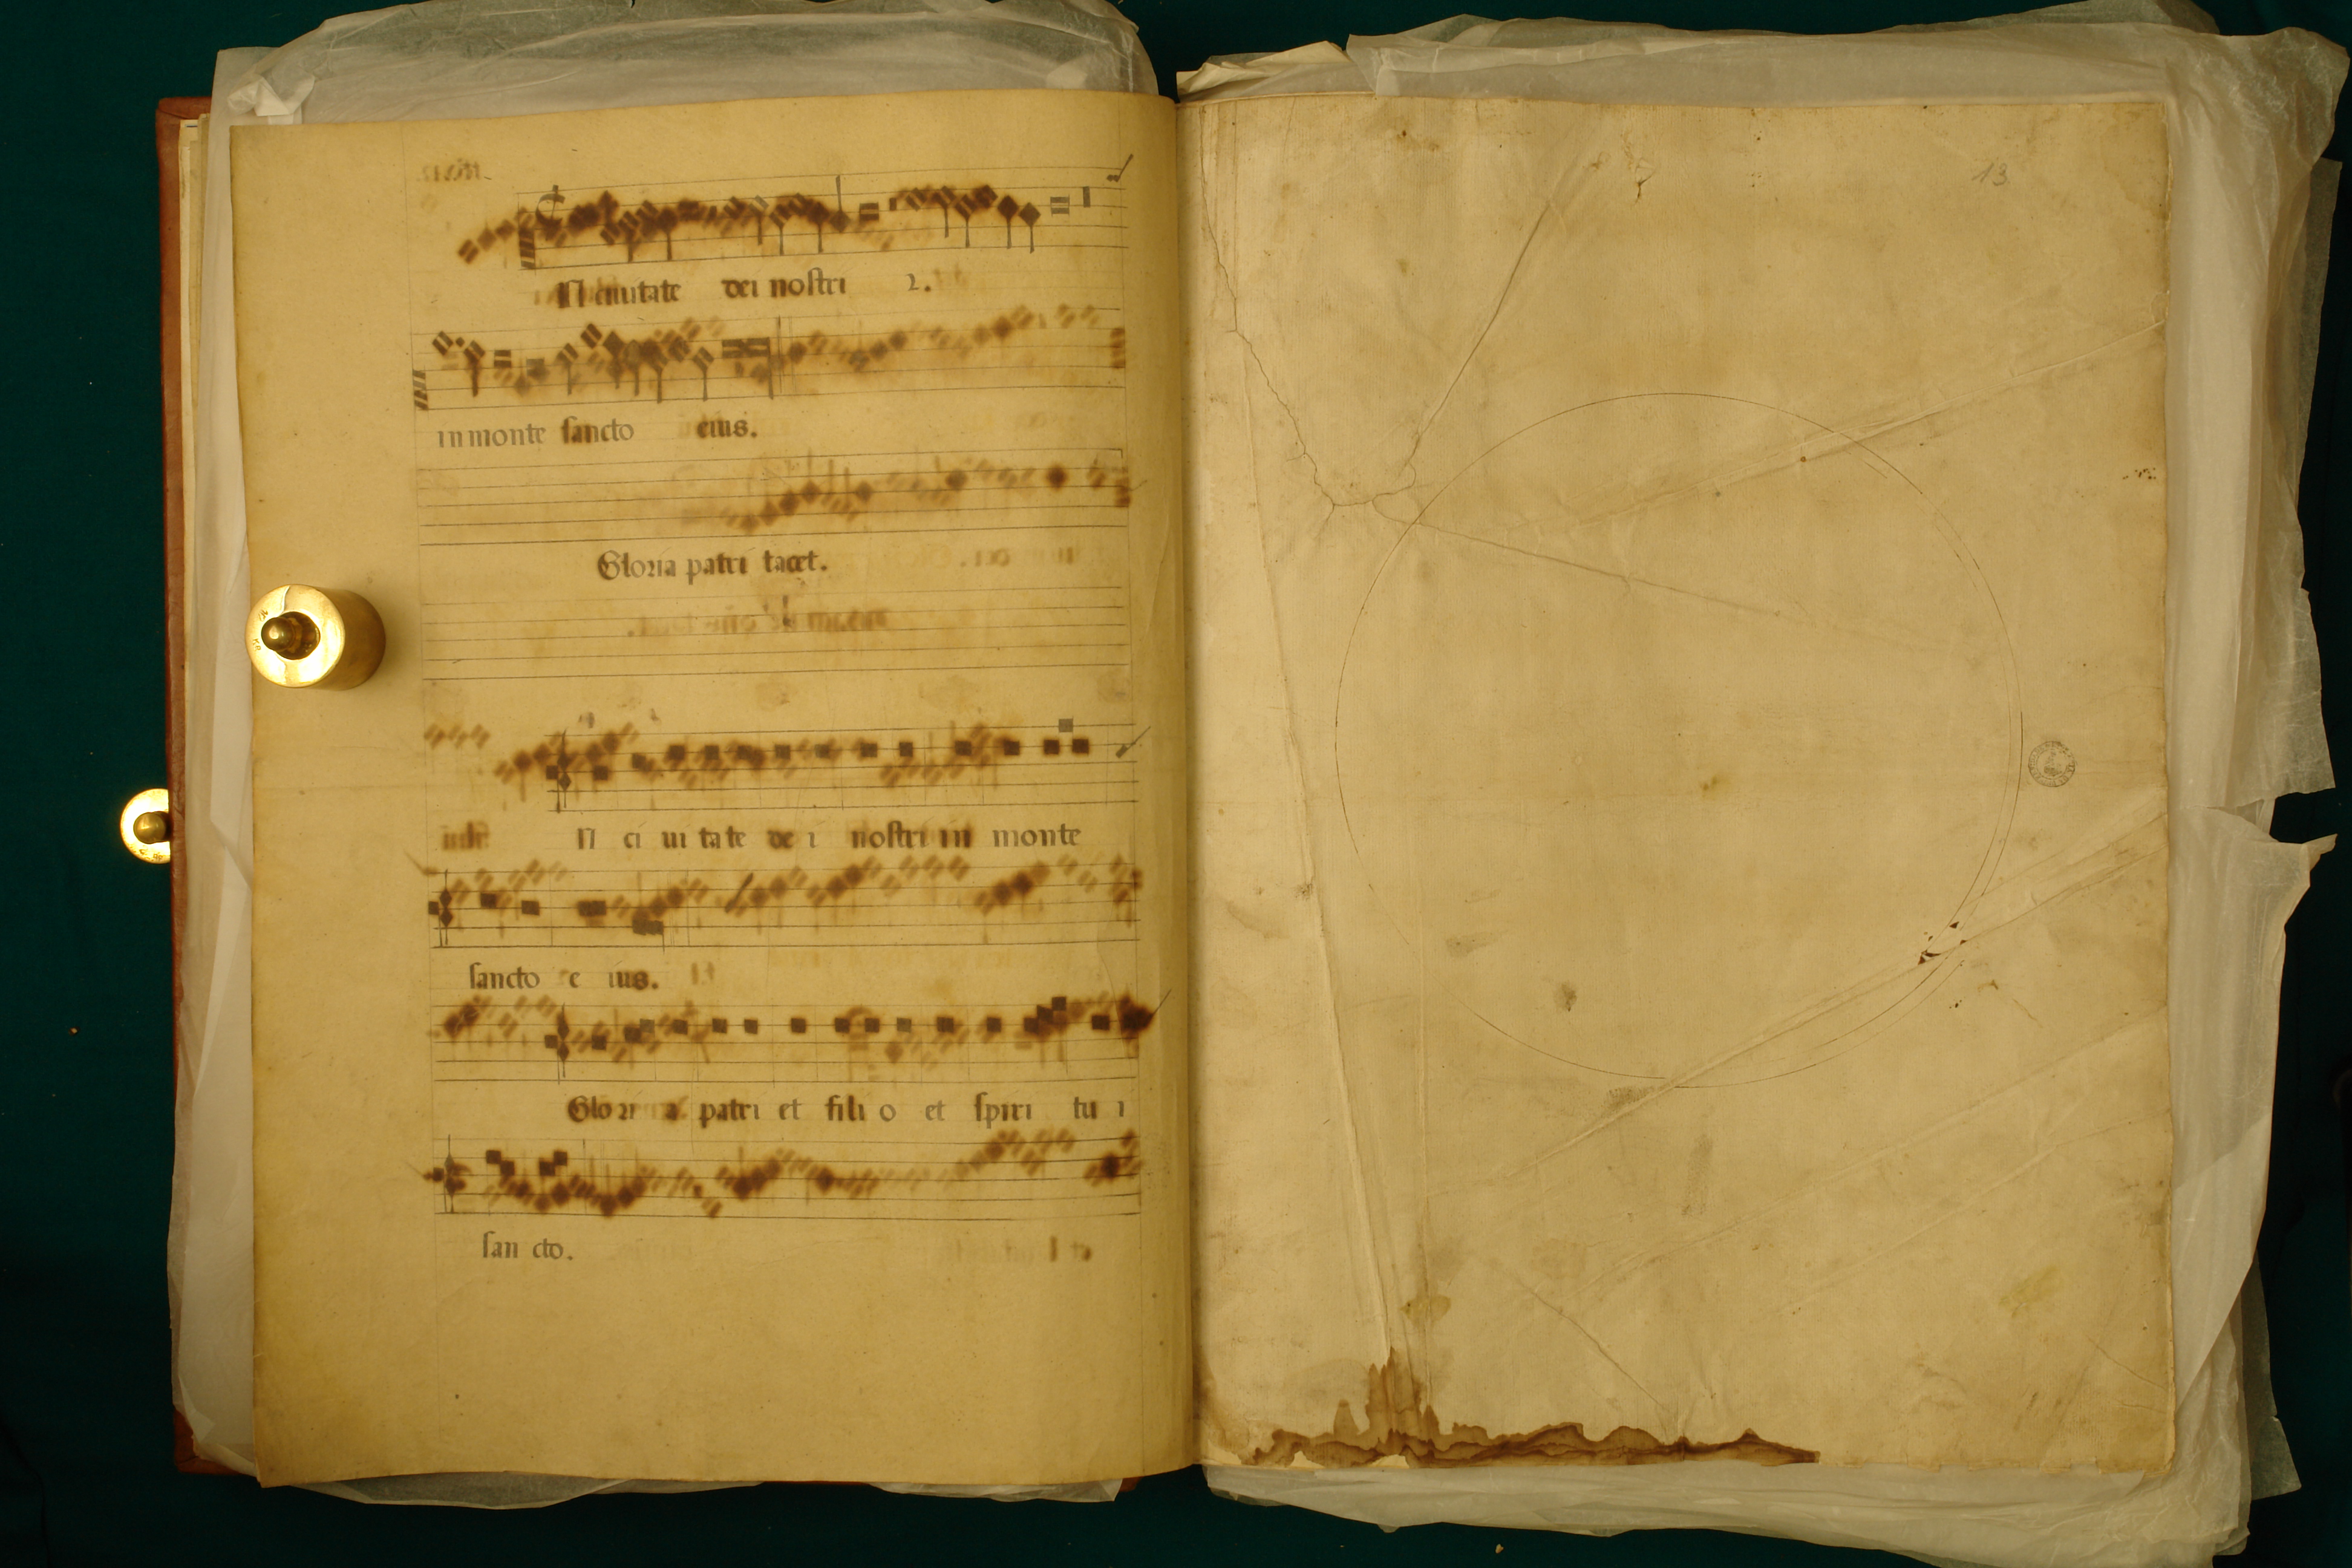 N ciuitate dei nostri 2.
in monte sancto eius.
Gloria patri tacet.
N ci ui ta te de i nostri in monte
sancto e ius.
Glo ri a patri et fili o et spiri tu i
san cto.
13